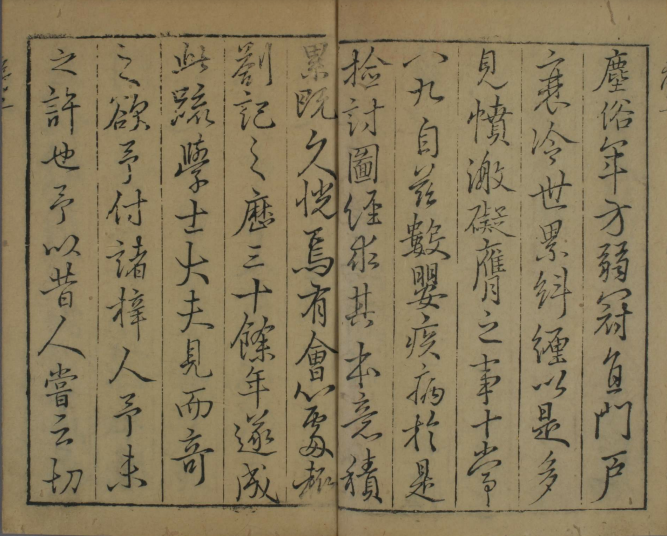 塵俗年方弱冠值門戶
衰冷世累糾纏以是多
見憤激礙膺之事十常
八九自茲數嬰疾病於是
檢討圖經求其本意積
累既久恍焉有會心處輒
劄記之歷三十餘年遂成
此疏學士大夫見而奇
之欲予付諸梓人予未
之許也予以昔人嘗云切